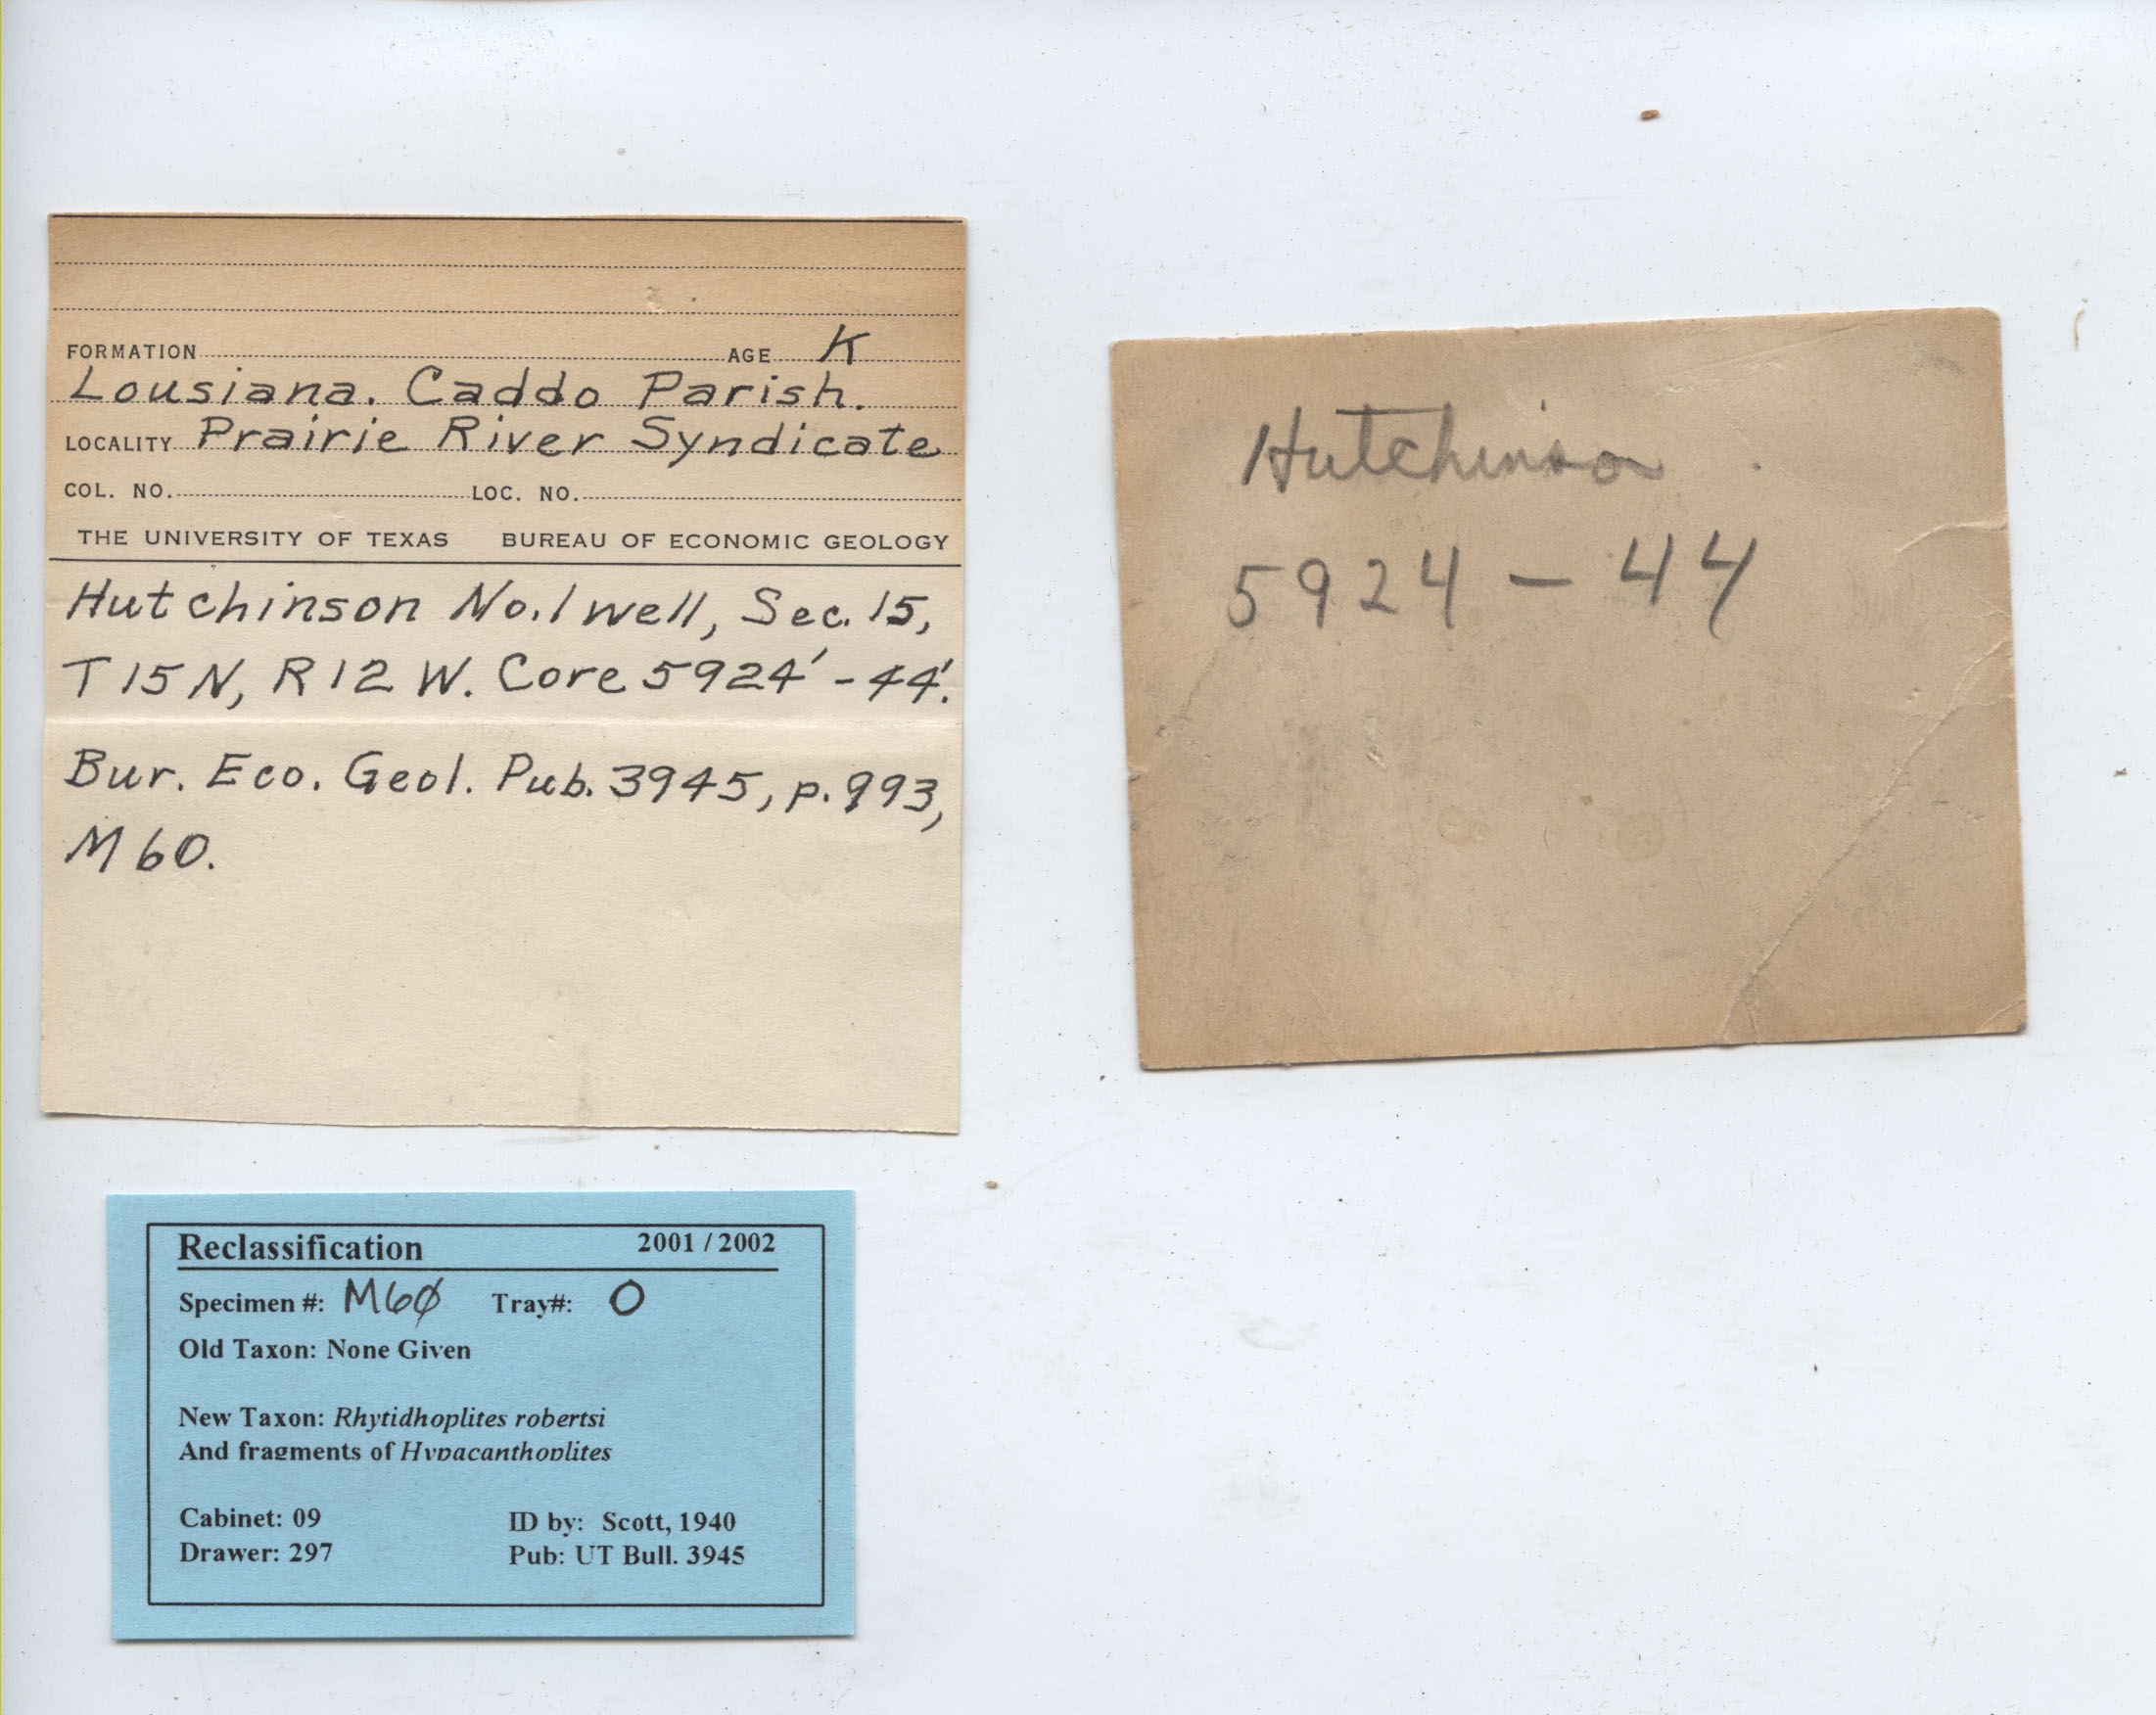 FORMATION AGE K
Lousiana. Caddo Parish.
LOCALITY Prairie River Syndicate
COL. NO. LOC. NO.
THE UNIVERSITY OF TEXAS BUREAU OF ECONOMIC GEOLOGY
Hutchinson No. 1 well, Sec. 15,
T 15 N, R 12 W. Core 5924' - 44'.
Bur. Eco. Geol. Pub. 3945, p. 993,
M 60.
Hutchinson
5924 - 44
Reclassification 2001 / 2002
Specimen #: M60 Tray#: 0
Old Taxon: None Given
New Taxon: Rhytidhoplites robertsi
And fragments of Hypacanthoplites
Cabinet: 09 ID by: Scott, 1940
Drawer: 297 Pub: UT Bull. 3945